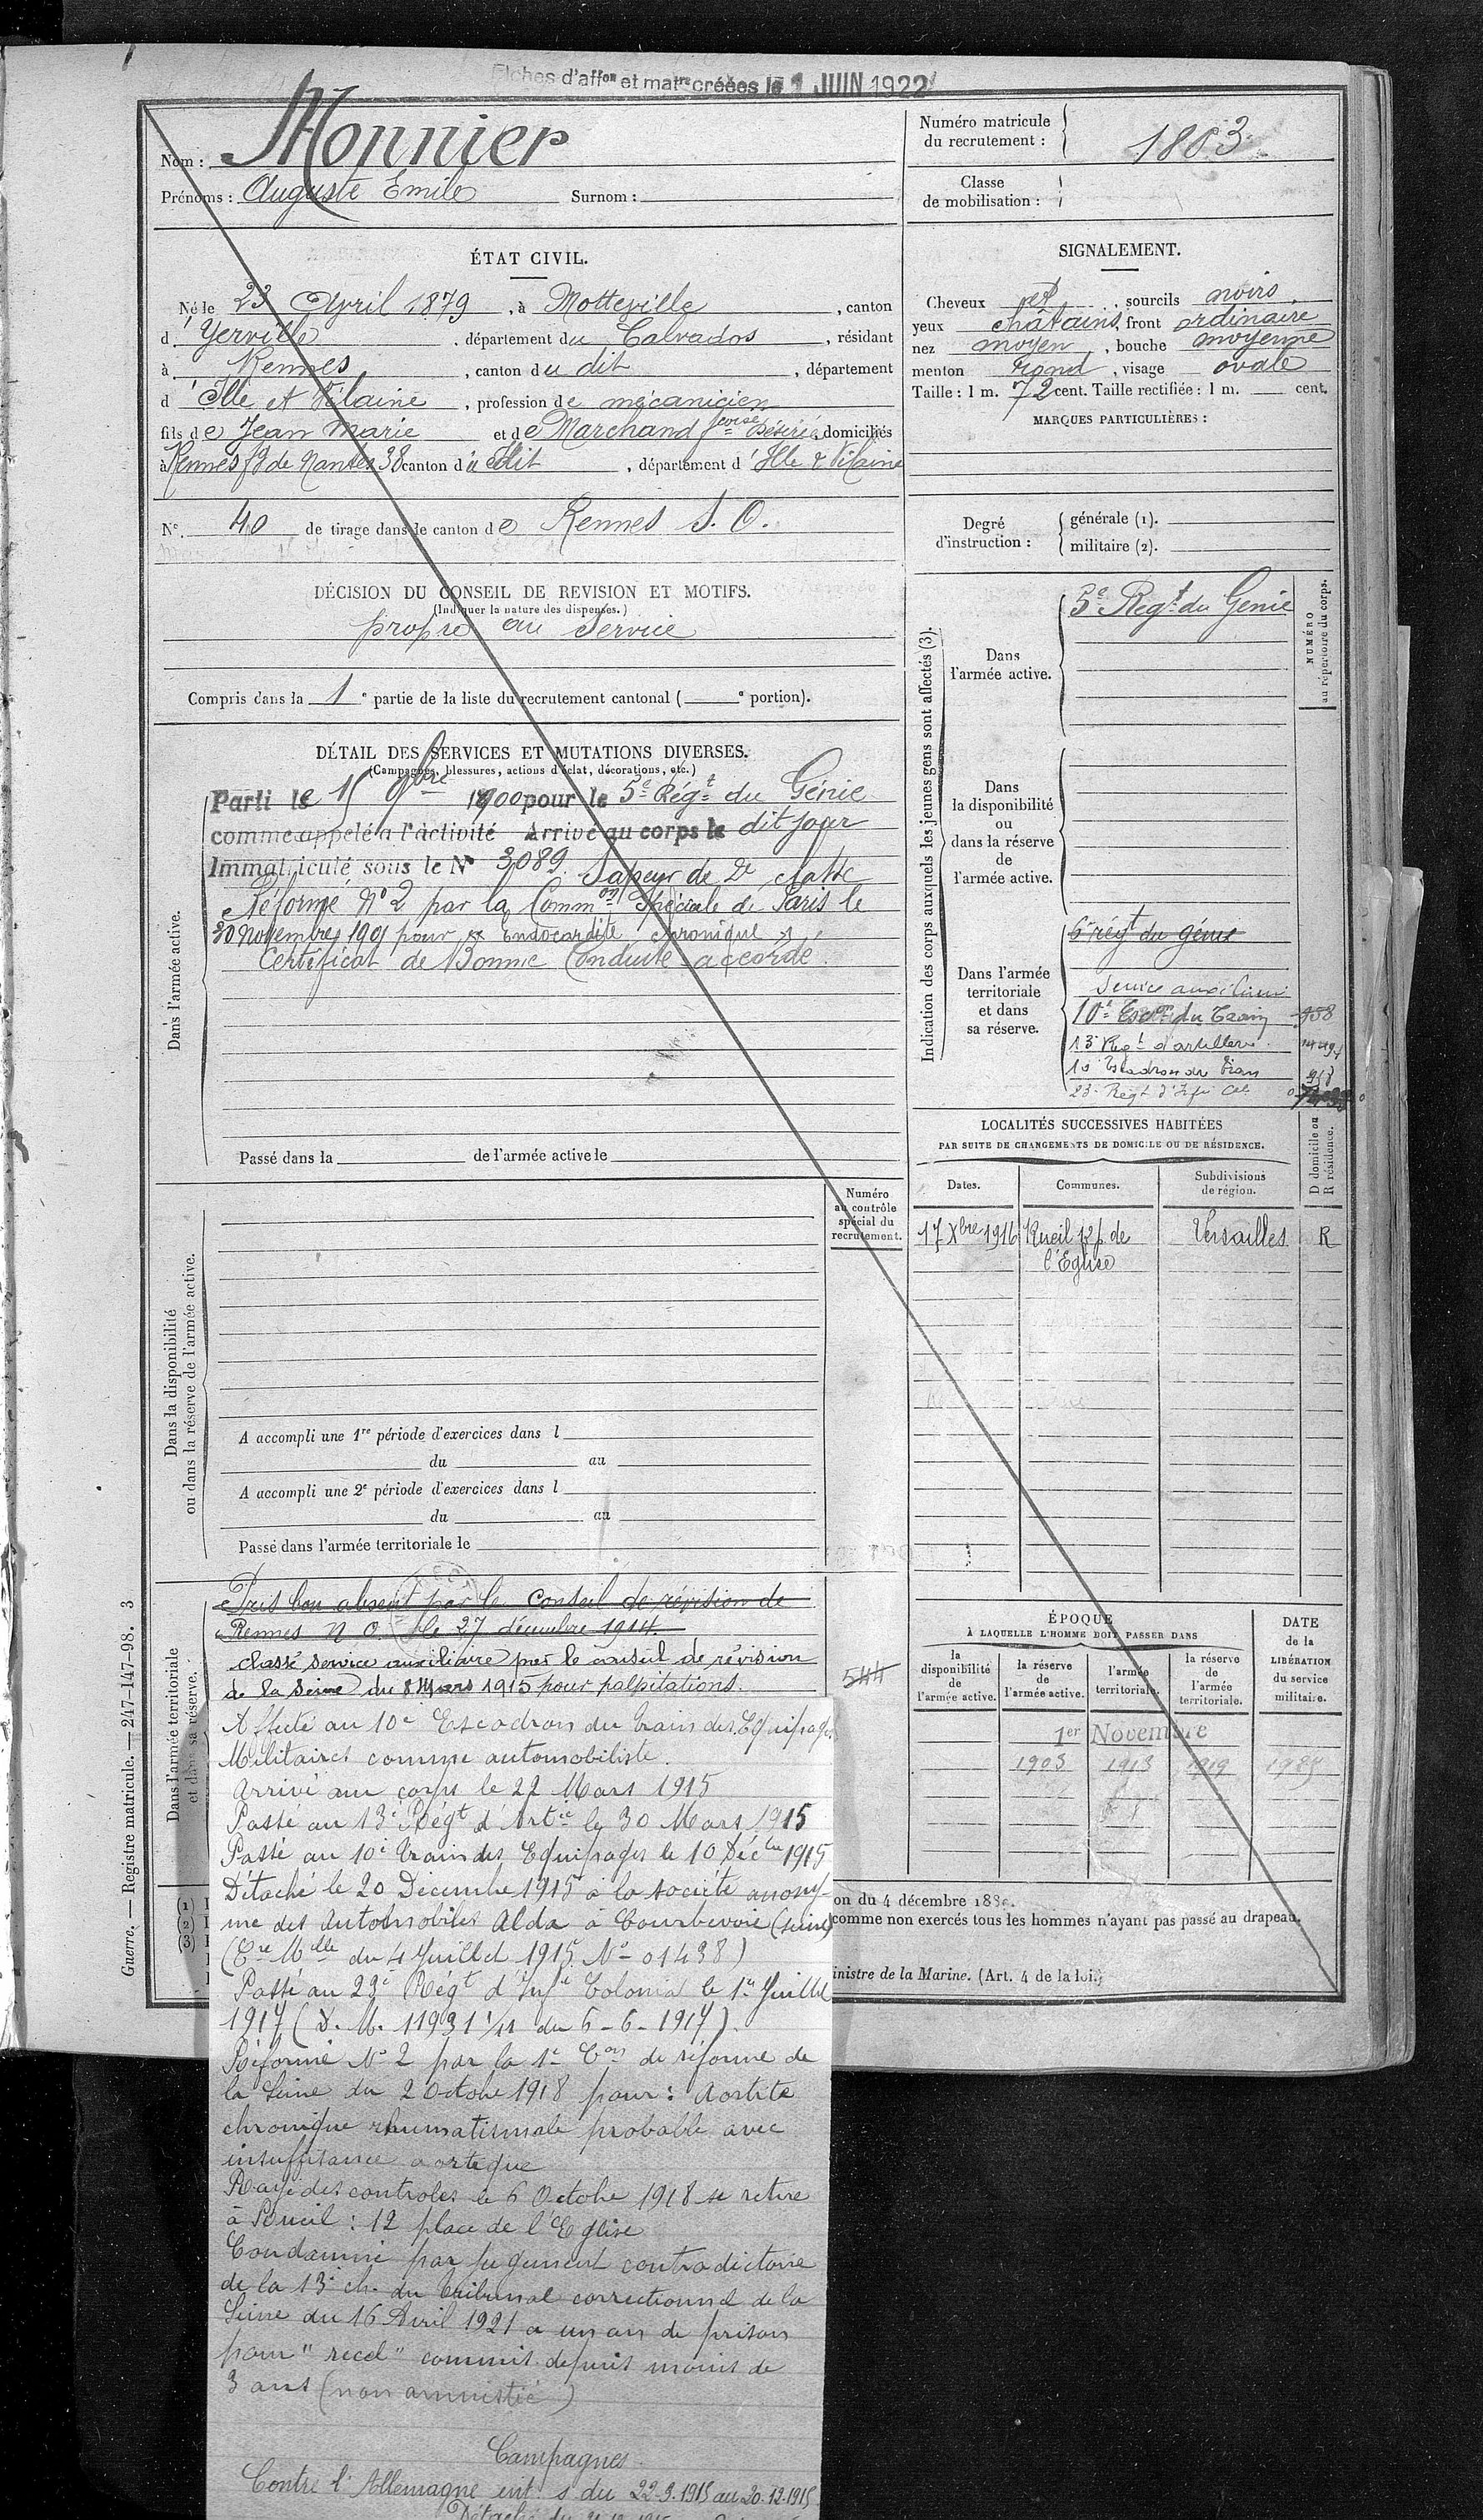 Fiches d'affon et matre créées le 1 JUIN 1922
Nom : Monnier
Prénoms : Auguste Emile Surnom :
Numéro matricule
du recrutement : 1803
Classe
de mobilisation :
ÉTAT CIVIL.
Né le 23 Avril 1879, à Motteville, canton
d'Yerville, département du Calvados, résidant
à Rennes, canton du dit, département
d'Ille et Vilaine, profession de mécanicien
fils de Jean Marie et de Marchand feoise Désirée, domiciliés
à Rennes fg de Nantes 38 canton du dit, département d'Ille & Vilaine
N° 40 de tirage dans le canton de Rennes S. O.
SIGNALEMENT.
Cheveux et, sourcils noirs
yeux châtains, front ordinaire
nez moyen, bouche moyenne
menton rond, visage ovale
Taille : 1 m. 72 cent. Taille rectifiée : 1 m. cent.
MARQUES PARTICULIÈRES :
Degré
d'instruction :
générale (1).
militaire (2).
DÉCISION DU CONSEIL DE REVISION ET MOTIFS.
(Indiquer la nature des dispenses.)
propre au Service
Compris dans la 1e partie de la liste du recrutement cantonal ( e portion).
DÉTAIL DES SERVICES ET MUTATIONS DIVERSES.
(Campagnes, blessures, actions d'éclat, décorations, etc.)
Dans l'armée active.
Parti le 15 9bre 1900 pour le 5e Régt du Génie
comme appelé à l'activité Arrivé au corps le dit jour
Immatriculé sous le N° 3089. Sapeur de 2e classe
Réformé N° 2 par la Common Spéciale de Paris le
30 Novembre 1901 pour "Endocardite chronique"
Certificat de Bonne Conduite accordé.
Passé dans la de l'armée active le
Indication des corps auxquels les jeunes gens sont affectés (3).
NUMÉRO
au répertoire du corps.
Dans
l'armée active.
5e Regt du Génie
Dans
la disponibilité
ou
dans la réserve
de
l'armée active.
Dans l'armée
territoriale
et dans
sa réserve.
6e régt du génie
Service auxiliaire
10e Escon du Train 958
13e Regt d'artillerie
10 Escadron du Train 958
23e Regt d'Infie Cole
LOCALITÉS SUCCESSIVES HABITÉES
PAR SUITE DE CHANGEMENTS DE DOMICILE OU DE RÉSIDENCE.
Dates.
Communes.
Subdivisions
de région.
D domicile ou
R résidence.
17 Xbre 1916 Rueil 12 p. de Versailles R
l'Eglise
Dans la disponibilité
ou dans la réserve de l'armée active.
Numéro
au contrôle
spécial du
recrutement.
A accompli une 1re période d'exercices dans l
du au
A accompli une 2e période d'exercices dans l
du au
Passé dans l'armée territoriale le
Dans l'armée territoriale
et dans sa réserve.
Pris bon absent par le Conseil de révision de
Rennes N O. le 27 décembre 1914.
classé service auxiliaire par le conseil de révision
de la Seine du 8 Mars 1915 pour palpitations.
544
Affecté au 10e Escadron du train des Equipages
Militaires comme automobiliste.
Arrivé au corps le 22 Mars 1915
Passé au 13e Régt d'Artie le 30 Mars 1915
Passé au 10e Train des Equipages le 10 Décbre 1915
Détaché le 20 Décembre 1915 à la société anony-
me des Automobiles Alda à Courbevoie (Seine)
(Cre Mlle du 4 Juillet 1915 N° 01438)
Passé au 23e Régt d'Infie Colonial le 1er Juillet
1917 (D. M. 11931 1/11 du 6-6-1917).
Réformé N° 2 par la 1e Con de réforme de
la Seine du 2 Octobre 1918 pour : Aortite
chronique rhumatismale probable avec
insuffisance aortique
Rayé des controles le 6 Octobre 1918 se retire
à Rueil : 12 place de l'Eglise
Condamné par jugement contradictoire
de la 13e ch. du tribunal correctionnel de la
Seine du 16 Avril 1921 a un an de prison
pour "recel" commis depuis moins de
3 ans (non amnistié)
Campagnes
Contre l'Allemagne int. s du 22-3.1915 au 20.12.1915
ÉPOQUE
À LAQUELLE L'HOMME DOIT PASSER DANS
la
disponibilité
de
l'armée active.
la réserve
de
l'armée active.
l'armée
territoriale.
la réserve
de
l'armée
territoriale.
DATE
de la
LIBÉRATION
du service
militaire.
1er Novembre
1903 1913 1919 1925
(1)
(2)
(3)
on du 4 décembre 188
comme non exercés tous les hommes n'ayant pas passé au drapeau.
inistre de la Marine. (Art. 4 de la loi.)
Guerre. — Registre matricule. — 247-147-98. 3